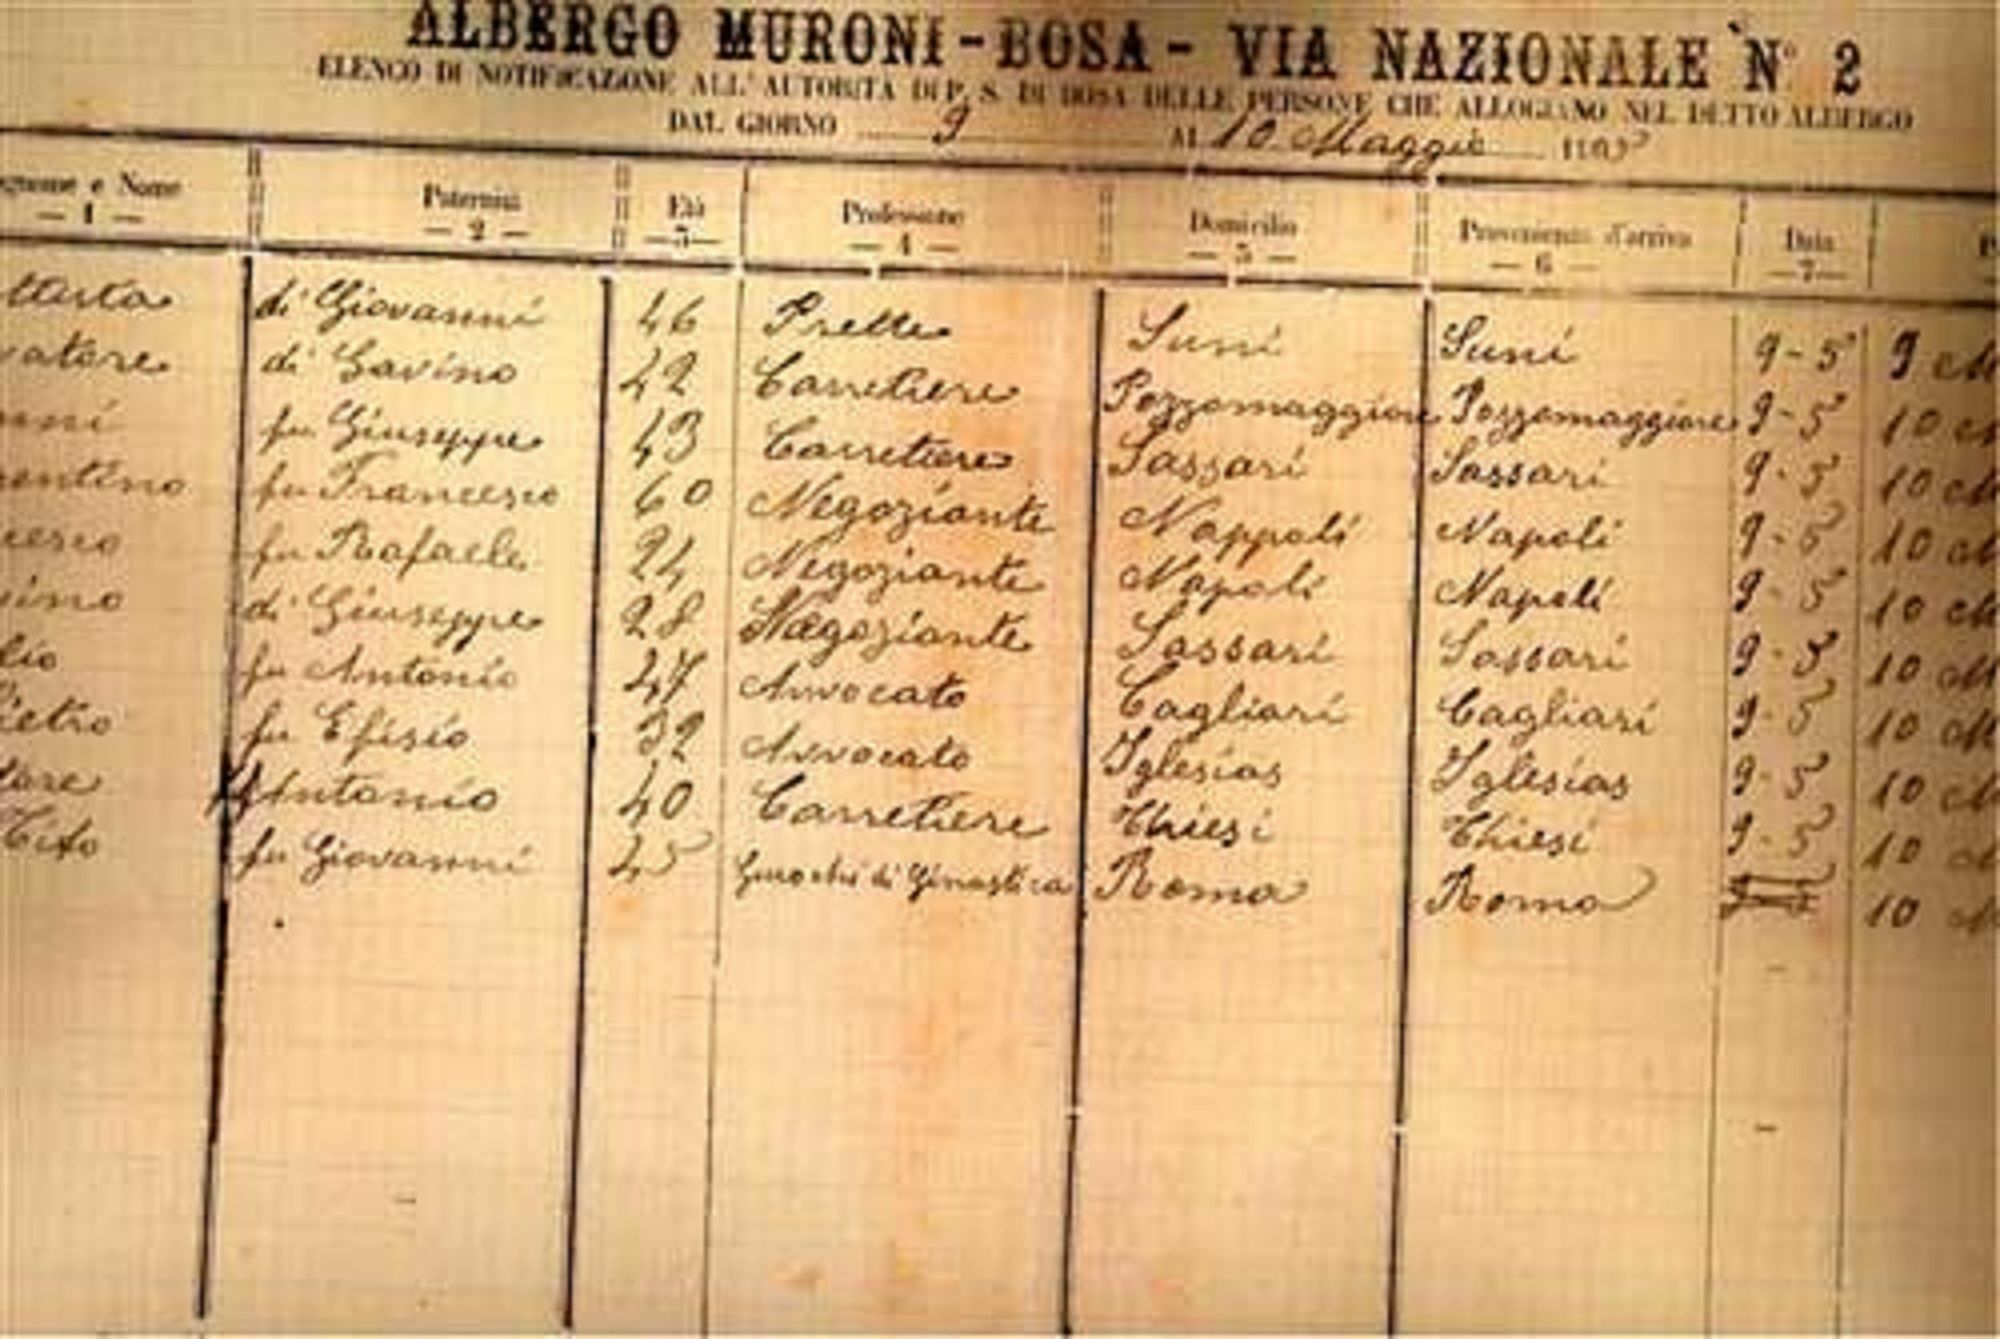 ALBERGO MURONI - BOSA - VIA NAZIONALE N° 2
ELENCO DI NOTIFICAZIONE ALL'AUTORITÀ DI P. S. DI BOSA DELLE PERSONE CHE ALLOGIANO NEL DETTO ALBERGO
DAL GIORNO 9 AL 10 Maggio
e Nome Paternità Età Professione Domicilio Provenienza d'arrivo Data
— 1 — — 2 — — 3 — — 4 — — 5 — — 6 — — 7 —
di Giovanni 46 Prette Suni Suni 9-5 9 M
vatore di Gavino 42 Carretiere Pozzomaggiore Pozzomaggiore 9-5 10 M
anni fu Giuseppe 43 Carretiere Sassari Sassari 9-5 10 M
entino fu Francesco 60 Negoziante Nappoli Napoli 9-5 10 M
cesco fu Rafaele 24 Negoziante Napoli Napoli 9-5 10 M
vino di Giuseppe 28 Negoziante Sassari Sassari 9-5 10 M
lio fu Antonio 47 Avvocato Cagliari Cagliari 9-5 10 M
Pietro fu Efisio 32 Avvocato Iglesias Iglesias 9-5 10 M
tore Antonio 40 Carretiere Thiesi Thiesi 9-5 10 M
Tito fu Giovanni 45 Giuochi di Ginastica Roma Roma 10 M